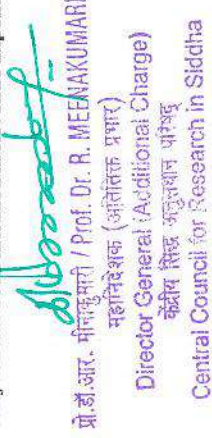 प्रो.डॉ.आर. मीनाकुमारी / Prof. Dr. R. MEENAKUMARI
महानिदेशक (अतिरिक्त प्रभार)
Director General (Additional Charge)
केंद्रीय सिद्ध अनुसंधान परिषद्
Central Council for Research in Siddha